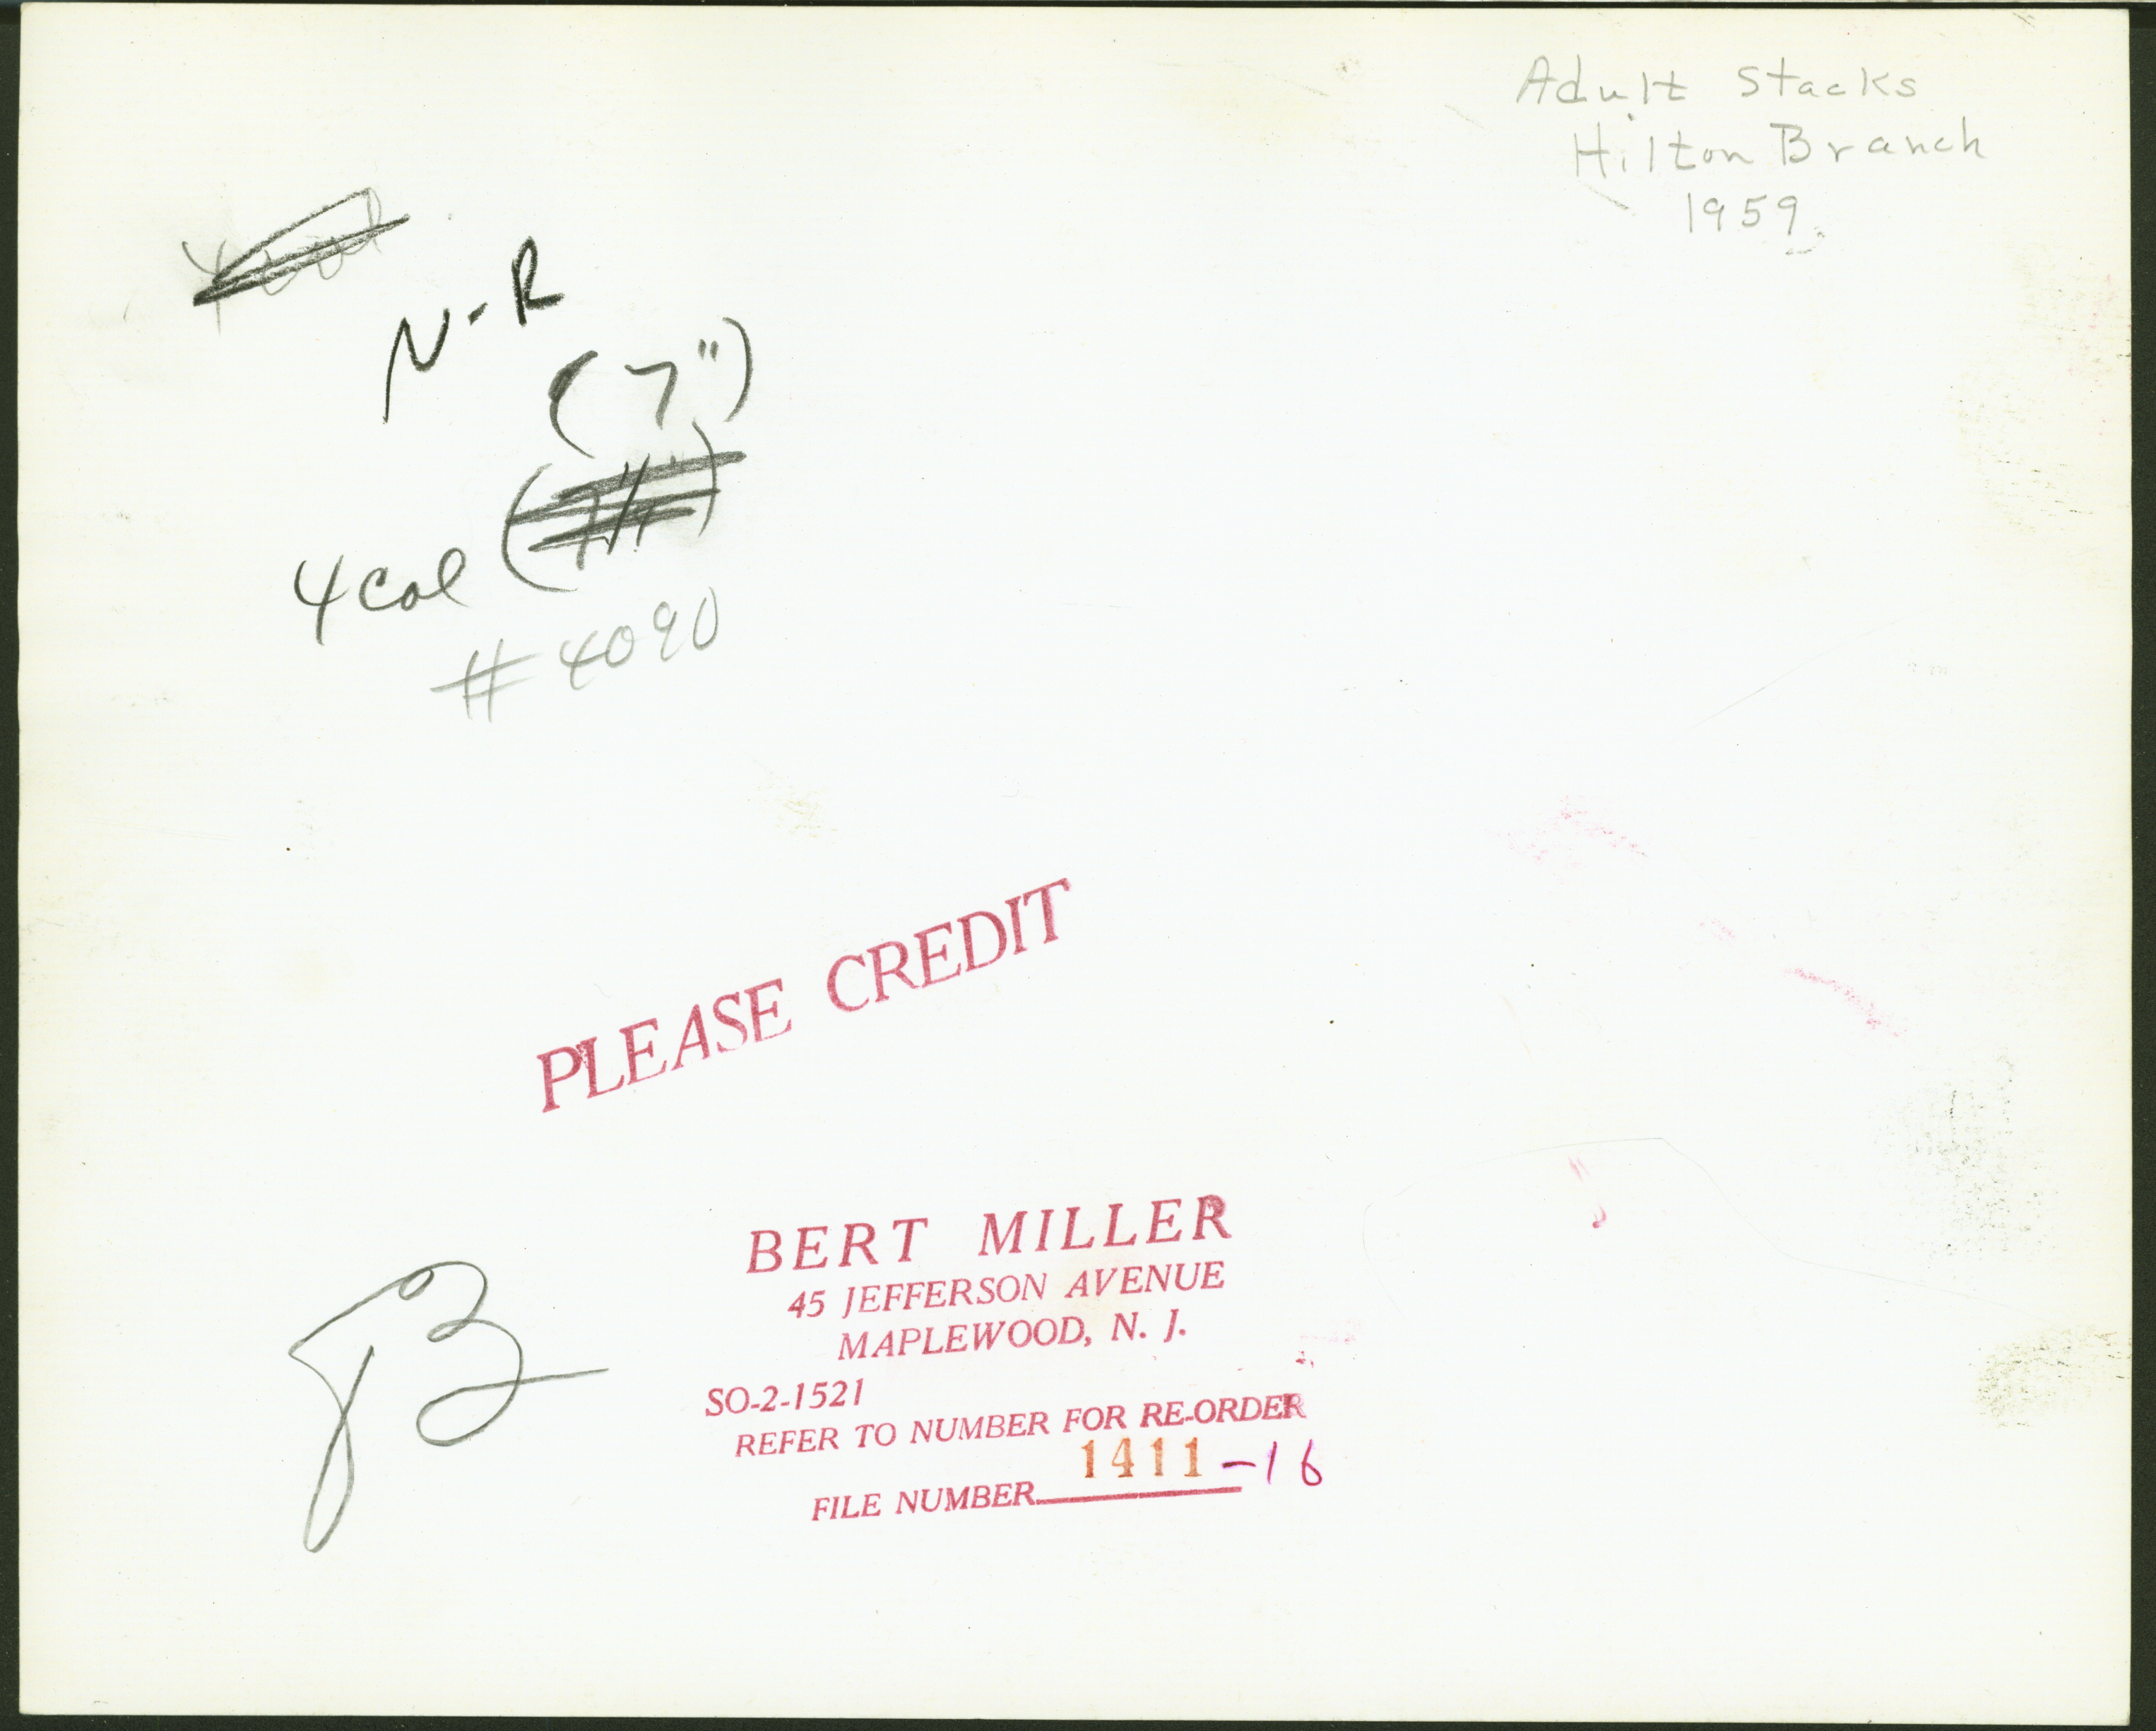 Adult Stacks
Hilton Branch
1959
N-R
(7")
4 Col
# 4090
PLEASE CREDIT
B
BERT MILLER
45 JEFFERSON AVENUE
MAPLEWOOD, N. J.
SO-2-1521
REFER TO NUMBER FOR RE-ORDER
FILE NUMBER 1411-16